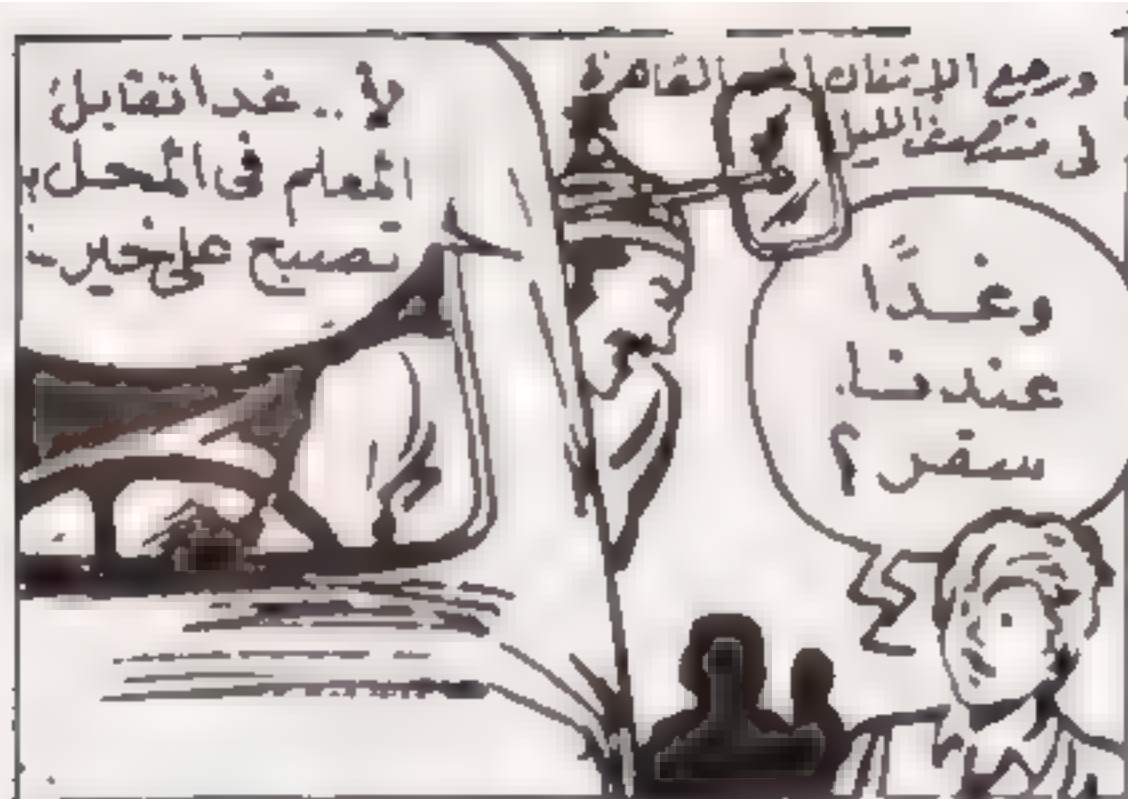 ورجع الإثنان إلى القاهرة
فى منتصف الليل
وغدًا
عندنا
سفر ؟
لأ .. غدا تقابل
المعلم فى المحل
تصبح على خير ..